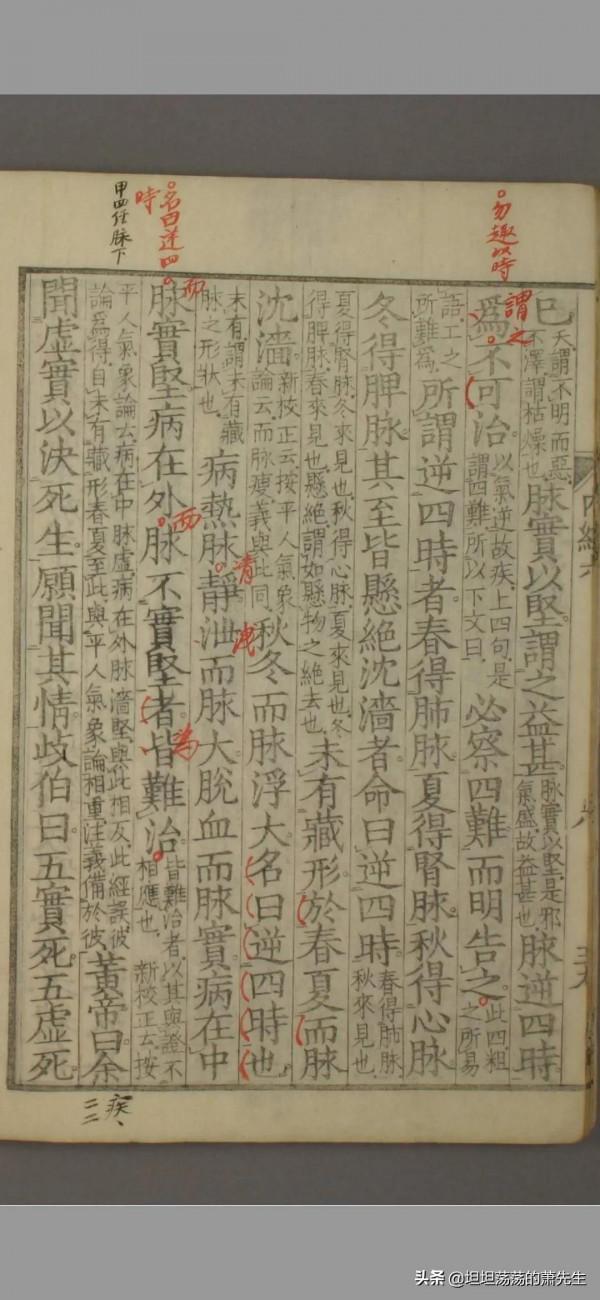 勿趣以時
謂之
名曰逆四
時
甲四經脉下
内經六
已夭謂不明而惡
不澤謂枯燥也脉實以堅謂之益甚脉實以堅是邪
氣盛故益甚也脉逆四時
爲不可治以氣逆故疾上四句是
謂四難所以下文曰必察四難而明告之此四粗
之所易
語工之
所難爲所謂逆四時者春得肺脉夏得腎脉秋得心脉
冬得脾脉其至皆懸絶沈濇者命曰逆四時春得肺脉
秋來見也
夏得腎脉冬來見也秋得心脉夏來見也冬
得脾脉春來見也懸絶謂如懸物之絶去也未有藏形於春夏而脉
沈濇新校正云按平人氣象
論云而脉瘦義與此同秋冬而脉浮大名曰逆四時也
未有謂未有藏
脉之形狀也病熱脉靜泄而脉大脫血而脉實病在中
清
洩
脉實堅病在外脉不實堅者皆難治皆難治者以其與證不
相應也新校正云按
而
而
為
平人氣象論云病在中脉虛病在外脉濇堅與此相反此經誤彼
論爲得自未有藏形春夏至此與平人氣象論相重注義備於彼黃帝曰余
聞虛實以決死生願聞其情歧伯曰五實死五虛死
疾、
二二
头条 @坦坦荡荡的萧先生